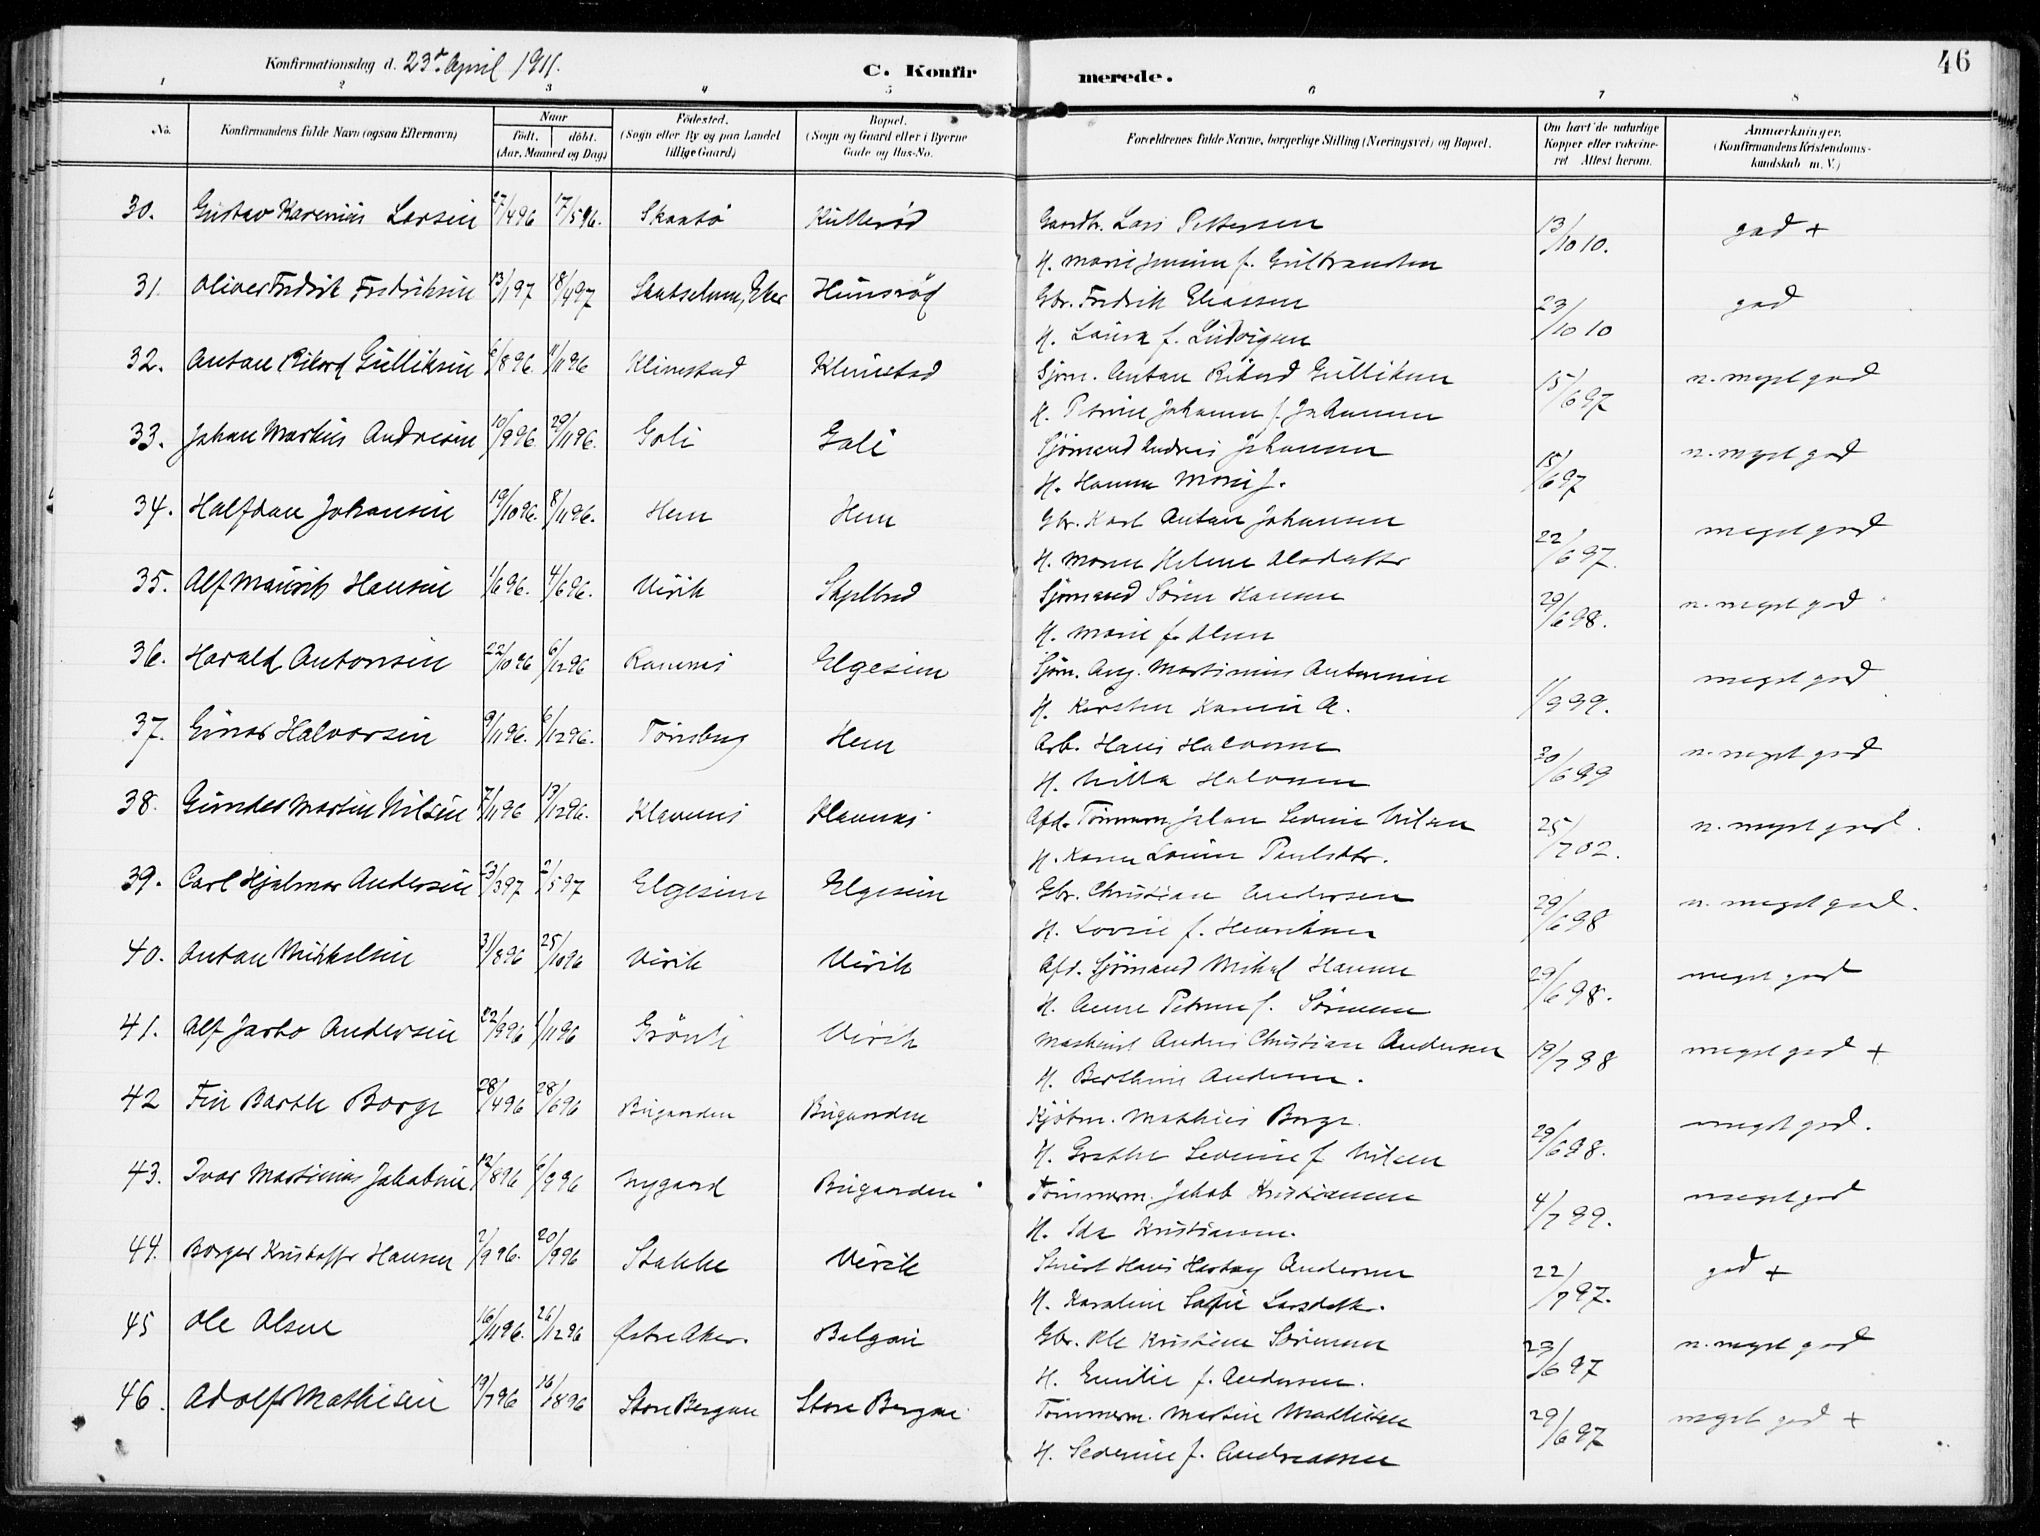 Konfirmationsdag d. 23de April 1911.
C. Konfirmerede.
46
1 2 3 4 5 6 7 8
No. Konfirmandens fulde Navn (ogsaa Efternavn) Naar født. døbt. (Aar, Maaned og Dag) Fødested. (Sogn eller By og paa Landet tillige Gaard) Bopæl. (Sogn og Gaard eller i Byerne Gade og Hus-No. Forældrenes fulde Navne, borgerlige Stilling (Næringsvei) og Bopæl. Om havt de naturlige Kopper eller vakcineret Attest herom. Anmærkninger. (Konfirmandens Kristendomskundskab m. V.)
30. Gustav Karenius Larsen 27/4 96 17/5 96. Skaatø Kullerød Gaardbr. Lars Pettersen 13/10 10. god +
H. Marie f. Gulbrandsen
31. Oliver Fredrik Fredriksen 13/1 97 18/4 97 Eker Hunsrød Gbr. Fredrik Eliassen 23/10 10 god
H. Laura f. Ludvigsen
32. Anton Rikard Gulliksen 6/8 96. 11/11 96 Klinestad Klinestad Sjøm. Anton Rikard Gulliksen 15/6 97 n. meget god
H. Petrine Johanne f. Johannsen
33. Johan Marius Andresen 10/9 96. 29/11 96. Goli Goli Sjømand Andreas Johansen 15/6 97 n. meget god
H. Hanna Marie J.
34. Halfdan Johansen 19/10 96. 8/11 96. Hem Hem Gbr. Karl Anton Johansen 22/6 97. meget god
H. Maren Helene Olsdatter
35. Alf Mauritz Hansen 1/6 96. 4/6 96. Virik Skjelbred Sjømand Søren Hansen 29/6 98. n. meget god
H. Marie f. Olsen
36. Harald Antonsen 22/10 96 6/12 96 Ramnes Elgesem Sjøm. Aug. Martinius Antonsen 1/9 99. meget god
H. Kirsten Karine A.
37. Einar Halvorsen 9/11 96. 6/12 96. Tønsberg Hem Arb. Hans Halvorsen 30/6 99 n. meget god
H. Milla Halvorsen
38. Gunder Martin Nilsen 7/11 96 13/12 96. Klavenes Klavenes Afd. Tømmerm. Johan Severin Nilsen 25/7 02. n. meget god.
H. Karen Lovise Paulsdtr.
39. Carl Hjalmar Andersen 23/3 97 2/5 97 Elgesem Elgesem Gbr. Christian Andersen 29/6 98 n. meget god.
H. Lovise f. Henriksen
40. Anton Mikkelsen 31/8 96 25/10 96 Virik Virik Afd. Sjømand Mikal Hansen 29/6 98. meget god
H. Anne Petrine f. Sørensen
41. Alf Jarbo Andersen 22/9 96 1/11 96 Grønli Virik Maskinist Anders Christian Andersen 19/7 98 meget god +
H. Berthine Andersen.
42 Fin Barth Borge 28/4 96 28/6 96 Bugaarden Bugaarden Kjøbm. Mathias Borge 29/6 98. meget god.
H. Grethe Severine f. Nilsen
43. Ivar Martinius Jakobsen 12/8 96 6/9 96 Nygaard Bugaarden Tømmerm. Jakob Kristiansen 4/7 99. meget god
H. Ida Kristiansen.
44. Borger Kristoffer Hansen 2/9 96. 20/9 96 Stokke Virik Hans Andersen 22/7 97. god +
H. Karoline Sofie Larsdatter.
45 Ole Olsen 16/11 96. 26/12 96 Østre Aker. Belgau Gbr. Ole Kristian Sørensen 23/6 97 n. meget god
H. Emilie f. Andersen.
46. Adolf Mathisen 19/7 96 16/8 96 Store Bergan Store Bergan Tømmerm. Martin Mathisen 29/6 97 meget god +
H. Severine f. Andreassen